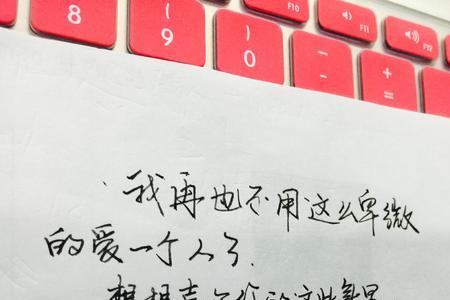 8 ( 9 ) 0 — - + = F10 F11 F12
我再也不用这么卑微
的爱一个人了.
想想